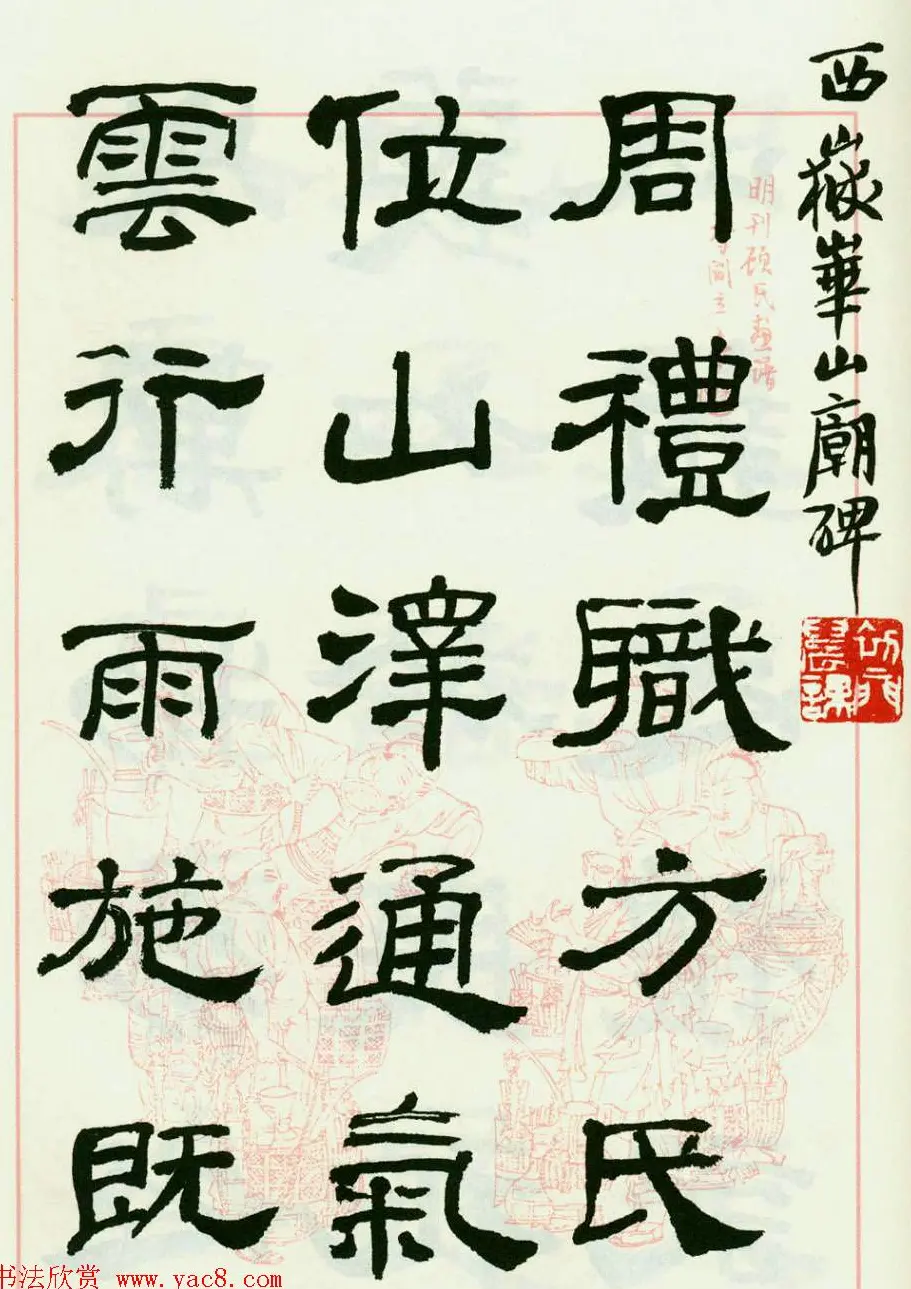 西嶽華山廟碑
周禮職方氏
位山澤通氣
雲行雨施既
明刊顾氏画谱
书法欣赏 www.yac8.com